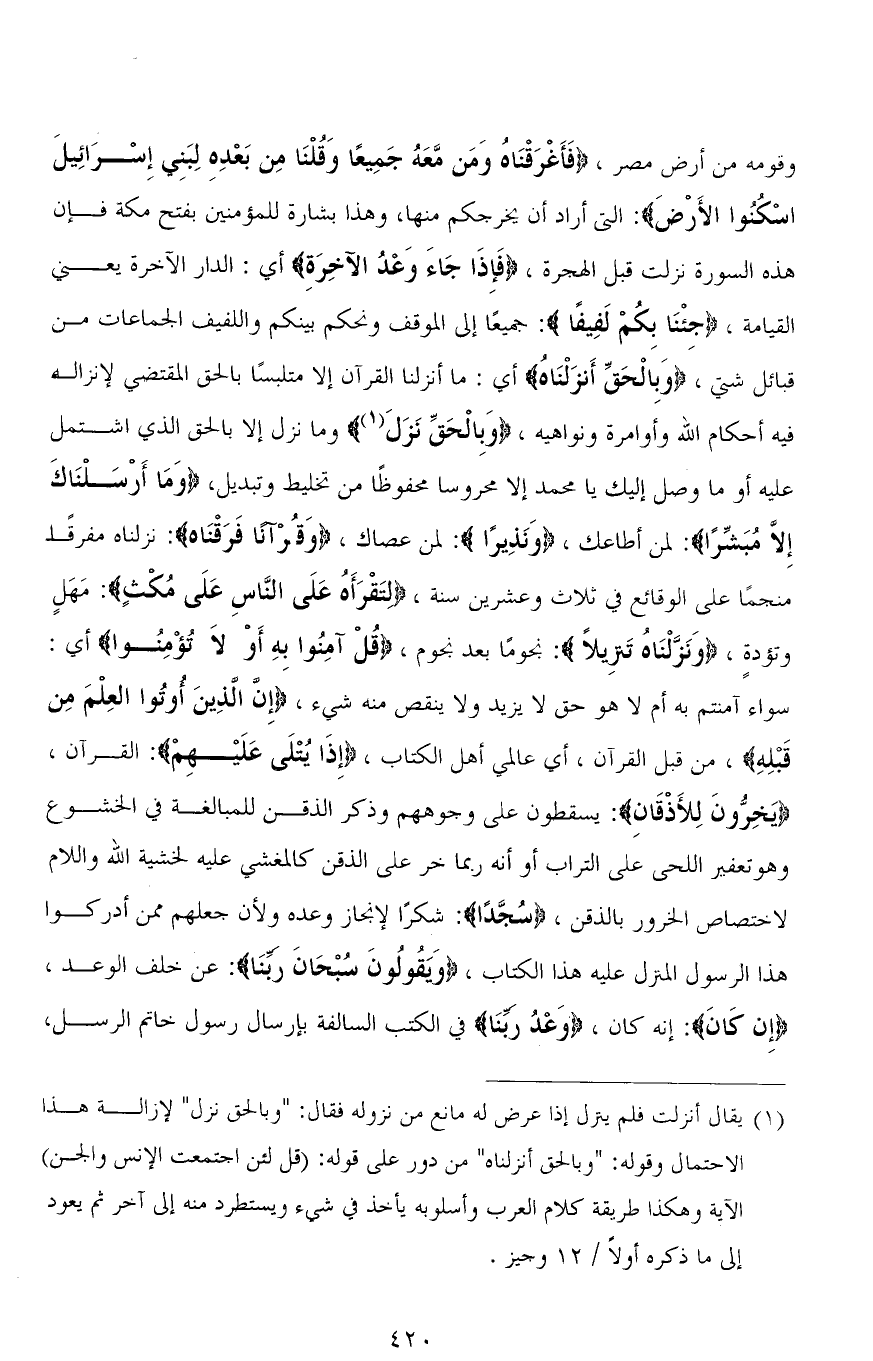 وقومه من أرض مصر ، ﴿فَأَغْرَقْنَاهُ وَمَن مَّعَهُ جَمِيعًا وَقُلْنَا مِن بَعْدِهِ لِبَنِي إِسْرَائِيلَ
اسْكُنُوا الأَرْضَ﴾: التي أراد أن يخرجكم منها، وهذا بشارة للمؤمنين بفتح مكة فإن
هذه السورة نزلت قبل الهجرة ، ﴿فَإِذَا جَاءَ وَعْدُ الآخِرَةِ﴾ أي : الدار الآخرة يعني
القيامة ، ﴿جِئْنَا بِكُمْ لَفِيفًا ﴾: جميعًا إلى الموقف ونحكم بينكم واللفيف الجماعات من
قبائل شتى ، ﴿وَبِالْحَقِّ أَنزَلْنَاهُ﴾ أي : ما أنزلنا القرآن إلا متلبسًا بالحق المقتضي لإنزاله
فيه أحكام الله وأوامرة ونواهيه ، ﴿وَبِالْحَقِّ نَزَلَ(١)﴾ وما نزل إلا بالحق الذي اشتمل
عليه أو ما وصل إليك يا محمد إلا محروسا محفوظًا من تخليط وتبديل، ﴿وَمَا أَرْسَلْنَاكَ
إِلاَّ مُبَشِّرًا﴾: لمن أطاعك ، ﴿وَنَذِيرًا ﴾: لمن عصاك ، ﴿وَقُرْآنًا فَرَقْنَاه﴾: نزلناه مفرقًا
منجمًا على الوقائع في ثلاث وعشرين سنة ، ﴿لِتَقْرَأَهُ عَلَى النَّاسِ عَلَى مُكْثٍ﴾: مَهَلٍ
وتؤدةٍ ، ﴿وَنَزَّلْنَاهُ تَنزِيلاً ﴾: نجومًا بعد نجوم ، ﴿قُلْ آمِنُوا بِهِ أَوْ لاَ تُؤْمِنُوا﴾ أي :
سواء آمنتم به أم لا هو حق لا يزيد ولا ينقص منه شيء ، ﴿إِنَّ الَّذِينَ أُوتُوا العِلْمَ مِن
قَبْلِهِ﴾ ، من قبل القرآن ، أي عالمي أهل الكتاب ، ﴿إِذَا يُتْلَى عَلَيْهِمْ﴾: القرآن ،
﴿يَخِرُّونَ لِلأَذْقَانِ﴾: يسقطون على وجوههم وذكر الذقن للمبالغة في الخشوع
وهو تعفير اللحى على التراب أو أنه ربما خر على الذقن كالمغشي عليه لخشية الله واللام
لاختصاص الخرور بالذقن ، ﴿سُجَّدًا﴾: شكرًا لإنجاز وعده ولأن جعلهم ممن أدركوا
هذا الرسول المنزل عليه هذا الكتاب ، ﴿وَيَقُولُونَ سُبْحَانَ رَبِّنَا﴾: عن خلف الوعد ،
﴿إِن كَانَ﴾: إنه كان ، ﴿وَعْدُ رَبِّنَا﴾ في الكتب السالفة بإرسال رسول خاتم الرسل،
(١) يقال أنزلت فلم ينزل إذا عرض له مانع من نزوله فقال: "وبالحق نزل" لإزالة هذا
الاحتمال وقوله: "وبالحق أنزلناه" من دور على قوله: (قل لئن اجتمعت الإنس والجن)
الآية وهكذا طريقة كلام العرب وأسلوبه يأخذ في شيء ويستطرد منه إلى آخر ثم يعود
إلى ما ذكره أولاً / ١٢ وجيز .
٤٢٠